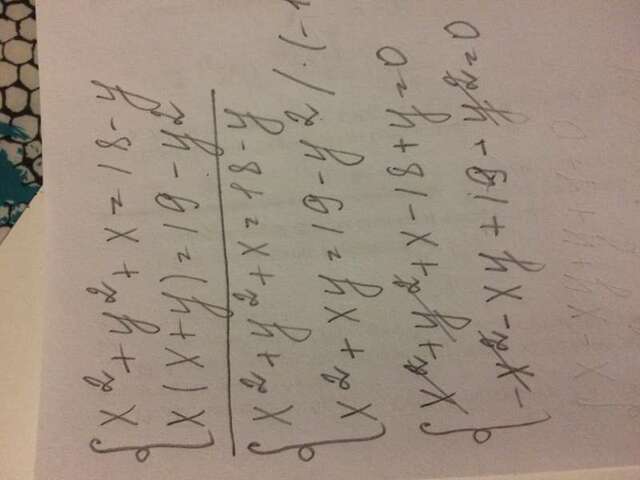 x² + y² + x = 18 - y
x(x+y) = 19 - y²
x² + y² + x = 18 - y
x² + xy = 19 - y² / · (-1
x² + y² + x - 18 + y = 0
-x² - xy + 19 - y² = 0
x - xy + y + 1 = 0